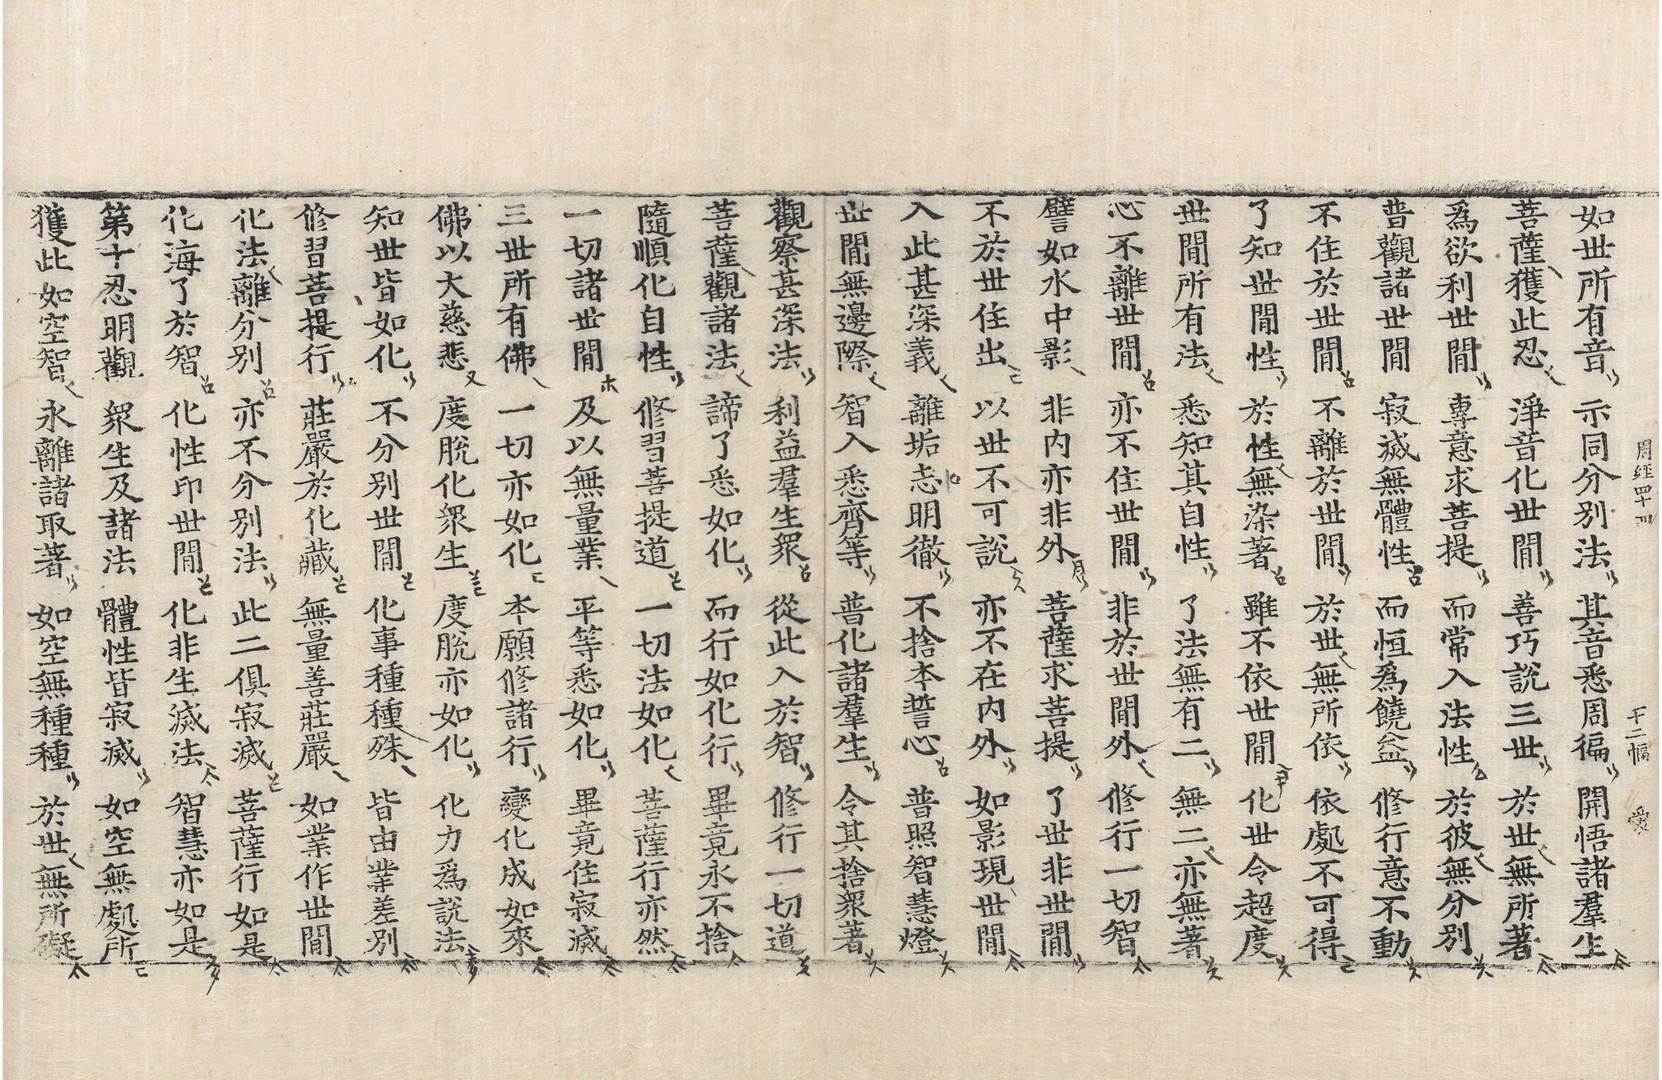 如世所有音 示同分別法 其音悉周徧 開悟諸羣生
菩薩獲此忍 淨音化世閒 善巧說三世 於世無所著
爲欲利世閒 專意求菩提 而常入法性 於彼無分別
普觀諸世閒 寂滅無體性 而恒爲饒益 修行意不動
不住於世閒 不離於世閒 於世無所依 依處不可得
了知世閒性 於性無染著 雖不依世閒 化世令超度
世閒所有法 悉知其自性 了法無有二 無二亦無著
心不離世閒 亦不住世閒 非於世閒外 修行一切智
譬如水中影 非內亦非外 菩薩求菩提 了世非世閒
不於世住出 以世不可說 亦不在內外 如影現世閒
入此甚深義 離垢悉明徹 不捨本誓心 普照智慧燈
世閒無邊際 智入悉齊等 普化諸羣生 令其捨衆著
觀察甚深法 利益羣生衆 從此入於智 修行一切道
菩薩觀諸法 諦了悉如化 而行如化行 畢竟永不捨
隨順化自性 修習菩提道 一切法如化 菩薩行亦然
一切諸世閒 及以無量業 平等悉如化 畢竟住寂滅
三世所有佛 一切亦如化 本願修諸行 變化成如來
佛以大慈悲 度脫化衆生 度脫亦如化 化力爲說法
知世皆如化 不分別世閒 化事種種殊 皆由業差別
修習菩提行 莊嚴於化藏 無量善莊嚴 如業作世閒
化法離分別 亦不分別法 此二俱寂滅 菩薩行如是
化海了於智 化性印世閒 化非生滅法 智慧亦如是
第十忍明觀 衆生及諸法 體性皆寂滅 如空無處所
獲此如空智 永離諸取著 如空無種種 於世無所礙
周經四十四 十二幅